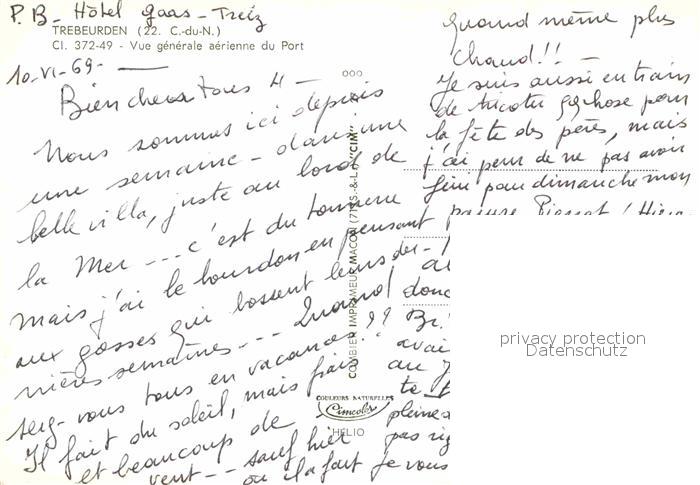 P.B- Hôtel gaas - Treiz
TREBEURDEN (22. C.-du-N.)
Cl. 372-49 - Vue générale aérienne du Port
10-VI-69-
Bien chers tous 4 -
Nous sommes ici depuis
une semaine - dans une
belle villa, juste au bord de
la Mer --- c'est du tonnerre
mais j'ai le bourdon en pensant
aux gosses qui bossent leurs der-
nières semaines --- Quand
serez-vous tous en vacances ??
Il fait du soleil, mais frais
et beaucoup de
vent -- sauf hier
où il a fait
quand même plus
Chaud!! -
Je suis aussi en train
de tricoter qq chose pour
la fête des pères, mais
j'ai peur de ne pas avoir
fini pour dimanche mon
pauvre Pierrot ! Hier
donc
avai
au
te
pleine
pas
je vous
COMBIER IMPRIMEUR MACON (71) S.-&-L. "CIM"
COULEURS NATURELLES
Cimcolor
HÉLIO
privacy protection
Datenschutz